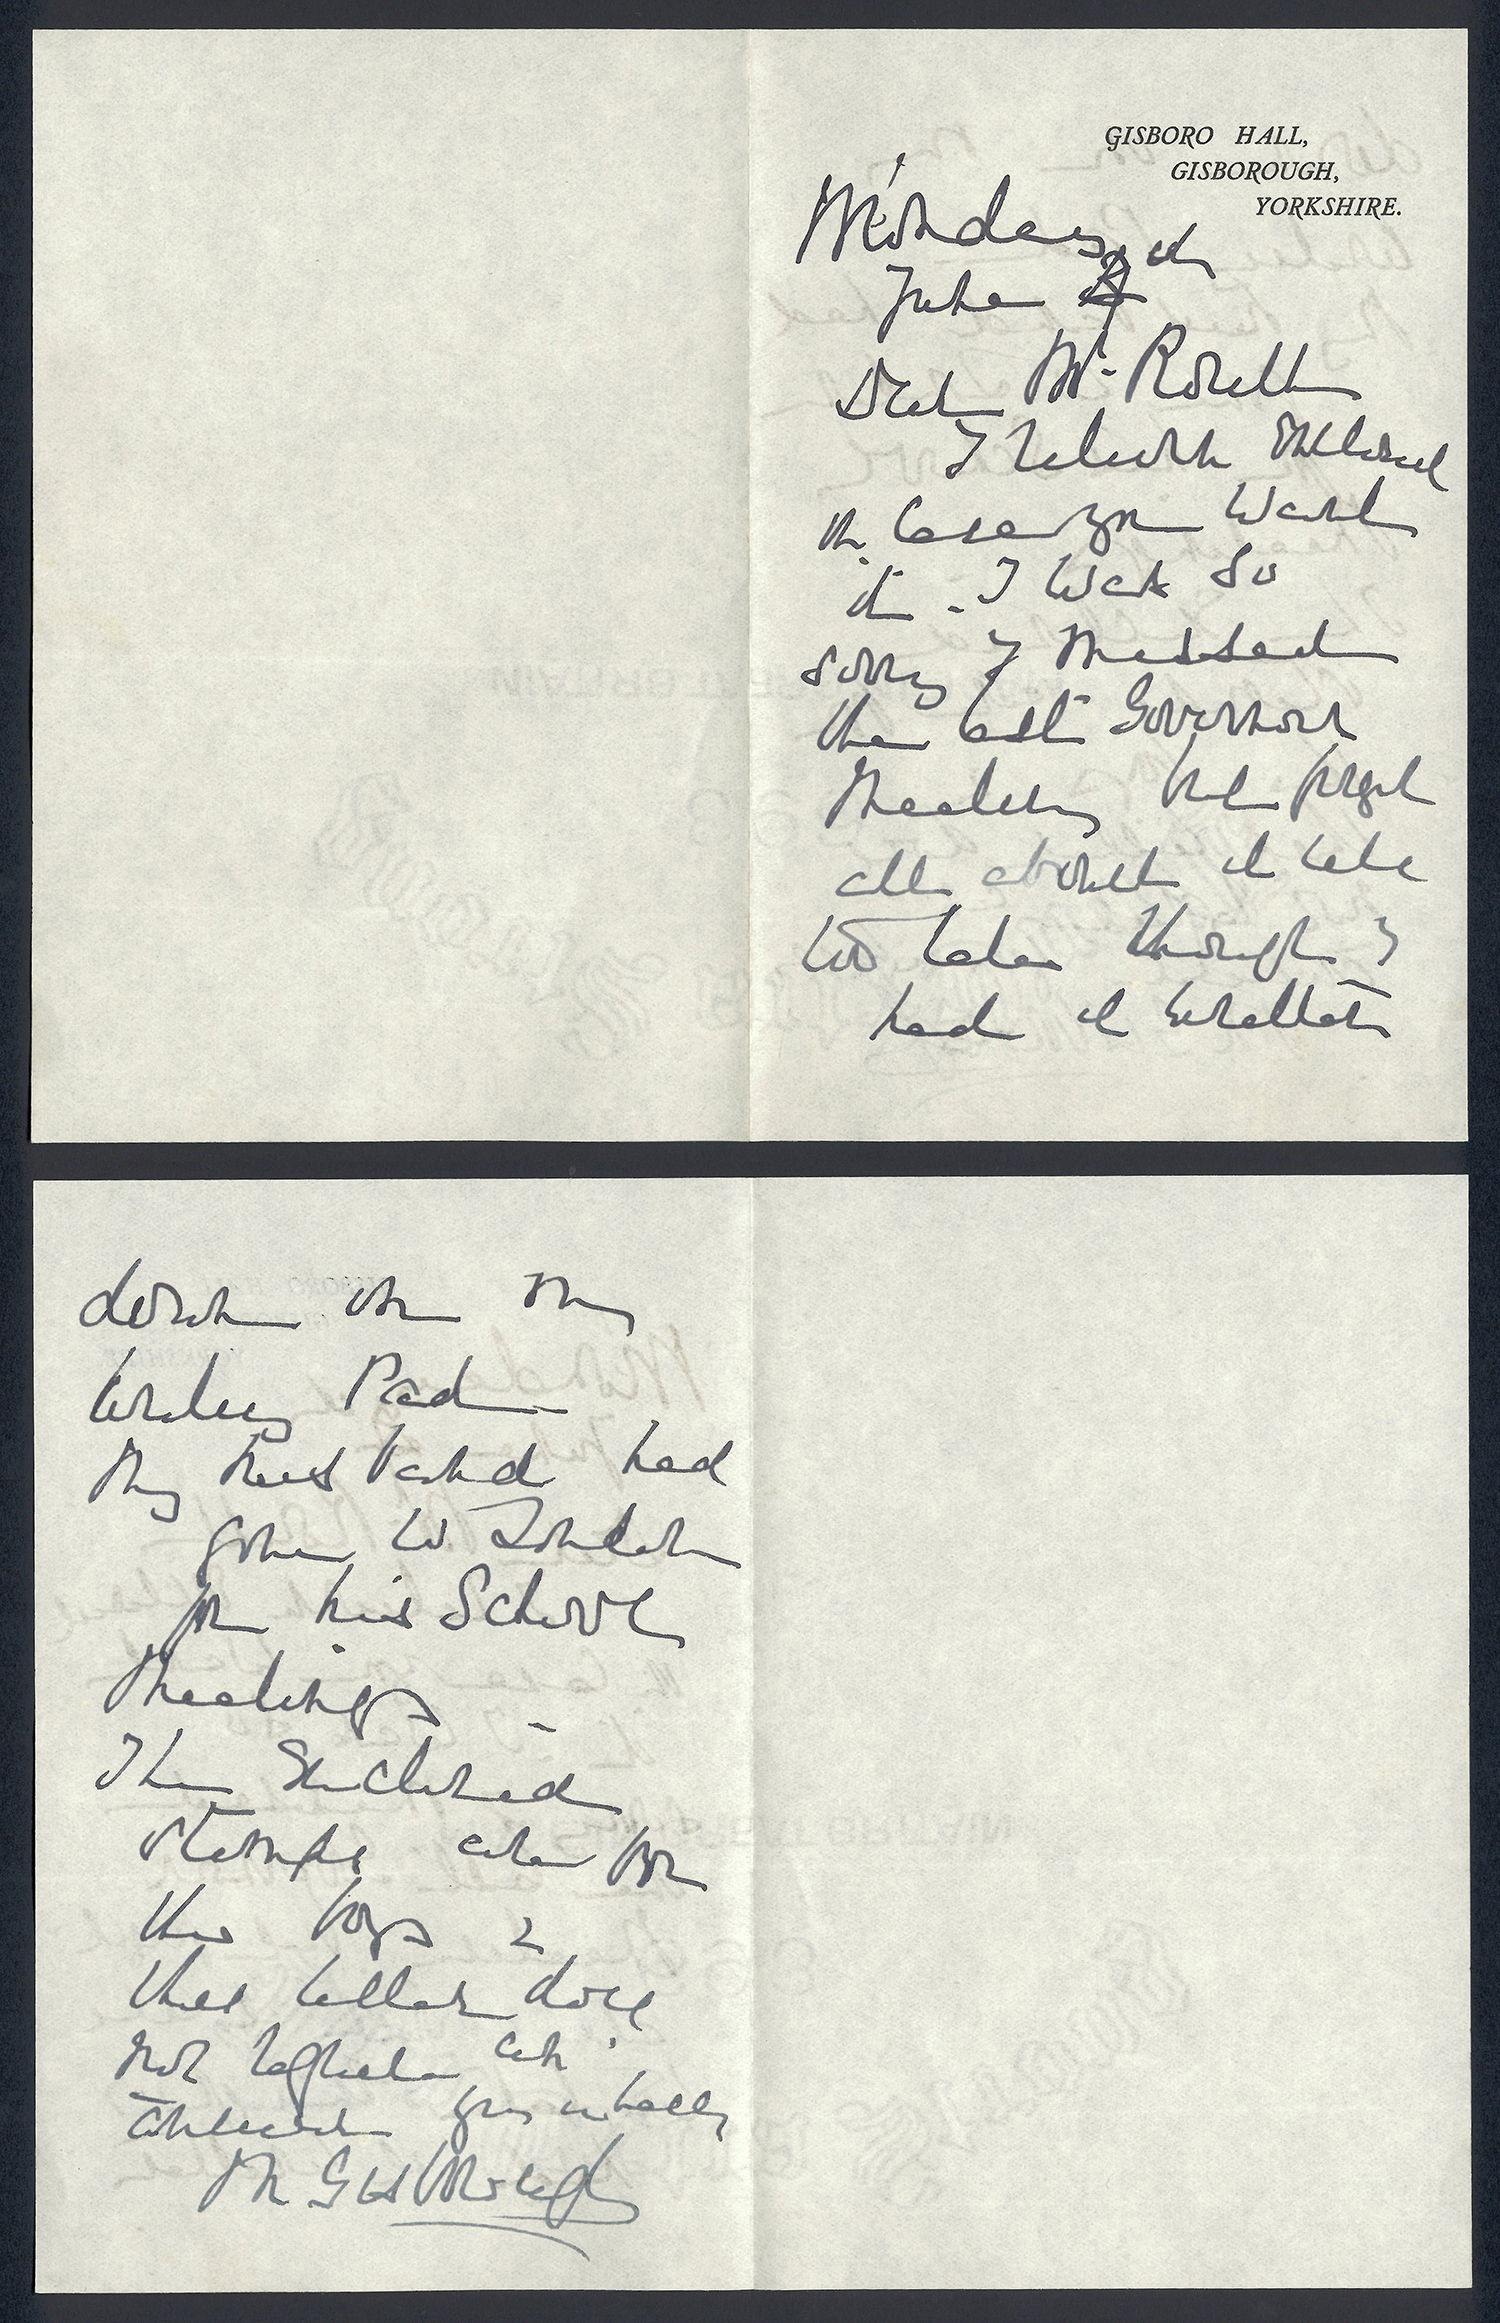 GISBORO HALL,
GISBOROUGH,
YORKSHIRE.
Monday
June th
Dear Mr Routh
I return enclosed
in case you want
it - I was so
sorry I missed
the last Governors
Meeting but forgot
all about it till
too late though I
had it written
down on my
writing Pad -
My husband had
gone to London
for his School
Meetings -
The enclosed
stamps are for
the boys &
this letter does
not require an
answer yrs sincerely
M Gisborough